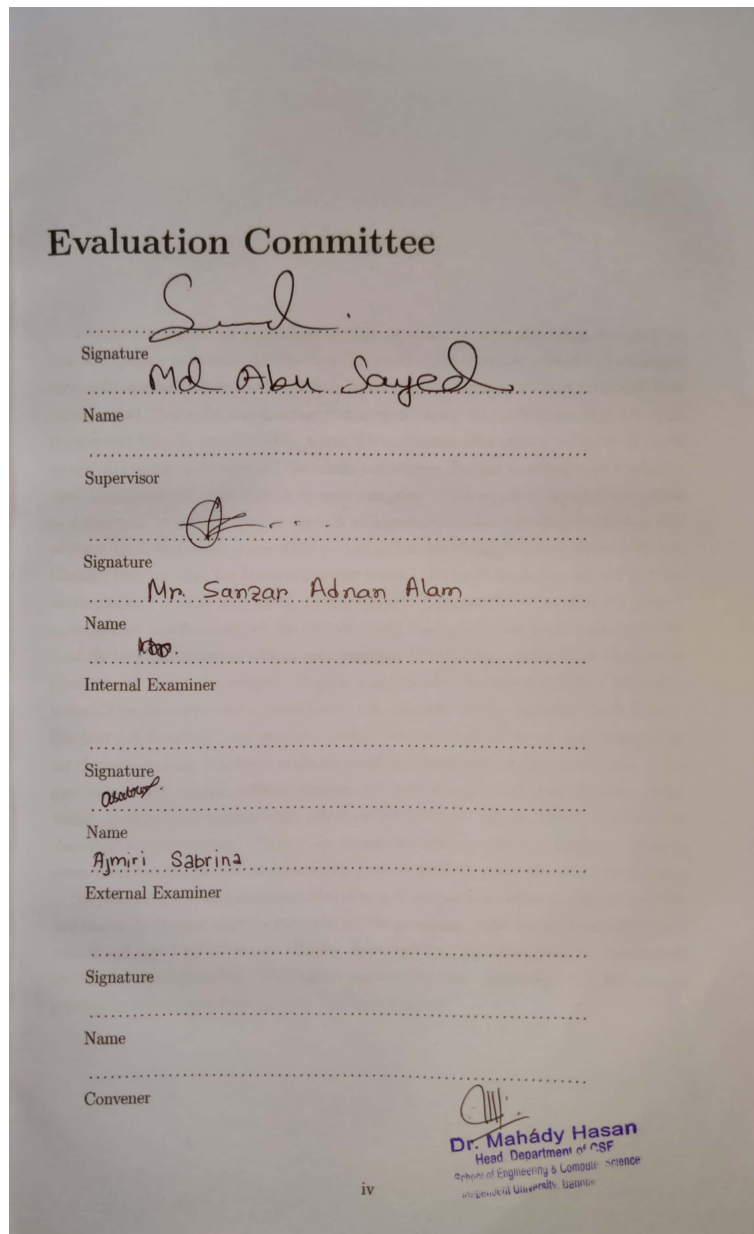 Evaluation Committee
Signature
Md Abu Sayed
Name
Supervisor
Signature
Mr. Sanzar Adnan Alam
Name
Internal Examiner
Signature
Name
Ajmiri Sabrina
External Examiner
Signature
Name
Convener
Dr. Mahády Hasan
Head Department of
School of Engineering & Computer Science
University,
iv